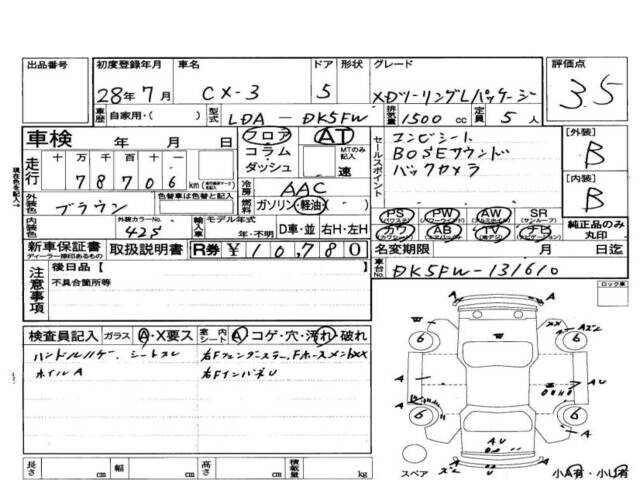 出品番号 初度登録年月 車名 ドア 形状 グレード 評価点
28年7月 CX-3 5 XDツーリングLパッケージ 3.5
車歴 自家用・( ) 型式 LDA-DK5FW 排気量 1500 cc 定員 5 人
車検 年 月 日 フロア AT
コラム MTのみ記入
ダッシュ 速
セールスポイント エンビシート
BOSEサウンド
バックカメラ
[外装]
B
[内装]
B
走行 十万千百十
78706 km
冷房 AAC
外装色 ブラウン 色替車は色替と記入
燃料 ガソリン・軽油・( )
内装色 外装カラーNo. 42S 輸入車 モデル年式 年・不明 D車・並 右H・左H
PS PW AW SR
カワ AB TV ナビ
純正品のみ丸印
新車保証書 取扱説明書 R券 ¥10,780
ディーラー捺印あるもの
名変期限 月 日迄
車台No. DK5FW-131610
注意事項 後日品【
不具合箇所等
ロック車
検査員記入 ガラス A・X要ス 室内シート A コゲ・穴・汚れ・破れ
ハンドルハゲ、シートスレ
ホイルA
右Fフェンダーステー、FホースメントXX
右FインパネU
長さ cm 幅 cm 高さ cm 積載量 kg
スペア 小A有・小U有